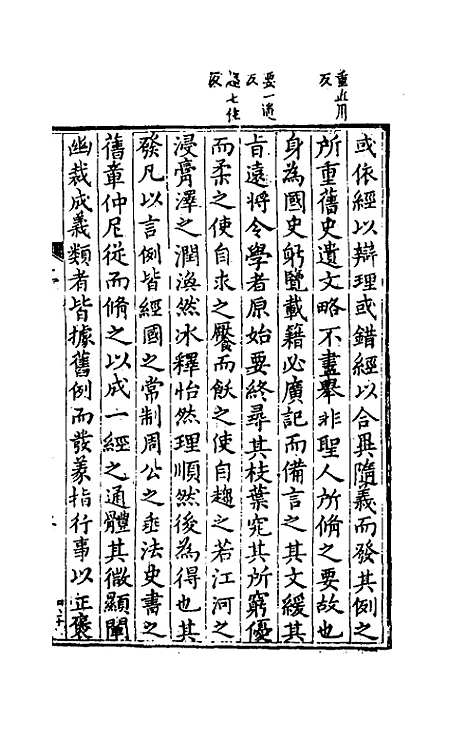 重直用反
要一遙反
趨七住反
或依經以辯理或錯經以合異隨義而發其例之
所重舊史遺文略不盡舉非聖人所脩之要故也
身為國史躬覽載籍必廣記而備言之其文緩其
旨遠將令學者原始要終尋其枝葉究其所窮優
而柔之使自求之饜而飫之使自趨之若江河之
浸膏澤之潤渙然冰釋怡然理順然後為得也其
發凡以言例皆經國之常制周公之垂法史書之
舊章仲尼從而脩之以成一經之通體其微顯闡
幽裁成義類者皆據舊例而發義指行事以正褒